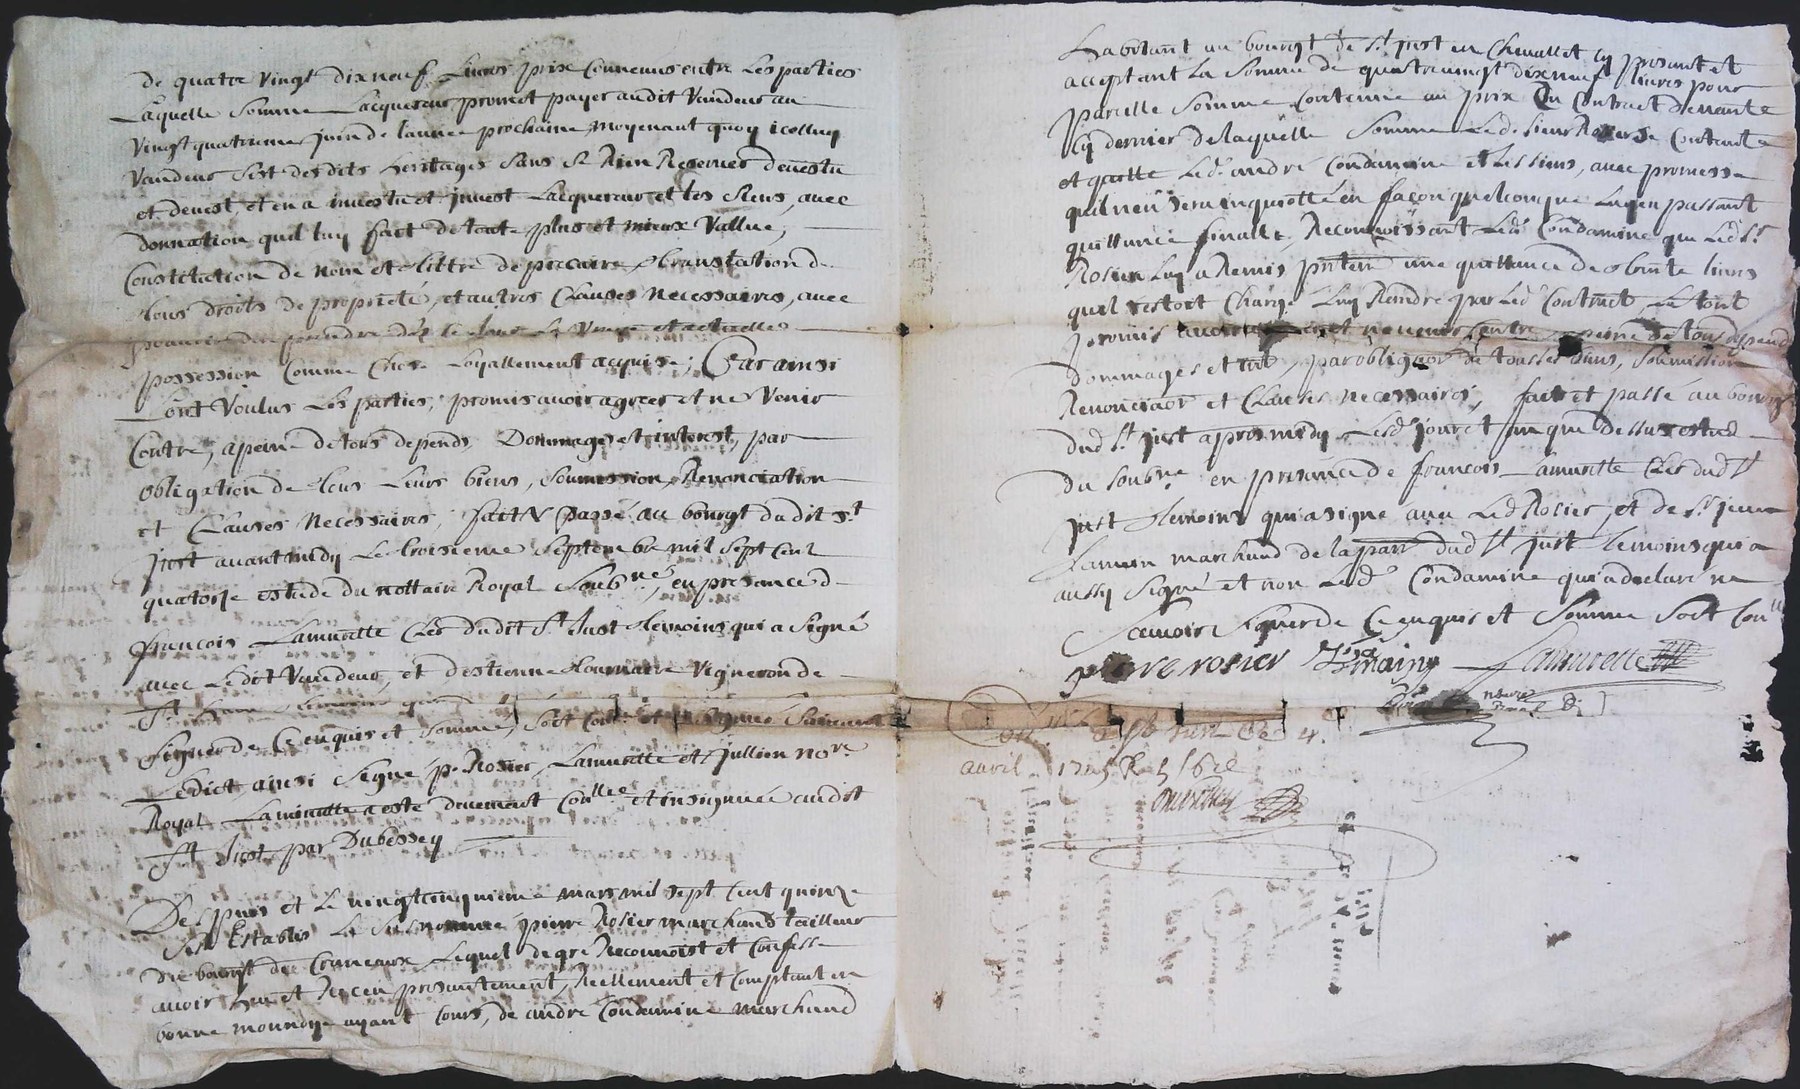 de quatre vingt dix neuf Livres prix Convenus entre Les parties
Laquelle somme Lacquereur promet payer audit Vandeur au
Vingt quatrieme juin de lannee prochaine, moyenant quoy icelluy
Vandeur sest desdits heritages sans se Rien Reserver devestu
et devest, et en a investu et invest Lacquereur et les siens, avec
donnation quil luy fait de toute plus et mieux Vallue,
Constitution de nom et tiltre de precaire translation de
tous droits de proprieté, et autres Clauses necessaires, avec
pouvoir den prendre dés le jour La Vraye et actuelle
possession Comme Chose Loyallement acquise; Car ainsi
Lont Voulus Les parties, promis avoir agreer et ne Venir
Contre, a peine de tous depends, Dommages et interest, par
obligation de tous Leurs biens, soumission, Renonciation
et Clauses necessaires, fait & passé au bourgt dudit St
just avant midy Le troisieme septembre mil sept cent
quatorze estude du nottaire Royal soubne, en presance de
françois Lamurette Clerc dudit St Just temoins qui a signé
avec Ledit Vandeur, et destienne tournaire Vigneron de
St
signer de Ce enquis et sommé, soit Conlé et
Ledict ainsi signé p. Rosier, Lamurette et jullien nore
Royal Laminutte a esté deuement Conllee et insignuée audit
St Just par Dubessey
Despuis et Le vingtcinquieme mars mil sept cent quinze
sest Establis Le susnommé pierre Rosier marchand tailleur
du bourgt de Cremeaux Lequel de gré Reconnoist et Confesse
avoir heu et Receu presantement, Reellement et Comptant en
bonne monnoye ayant Cours, de andré Condamine marchand
habitant au bourgt de St just en Chevallet cy present et
acceptant La somme de quatrevingt dixneuf livres pour
pareille somme Contenue au prix du Contract devant
cy dernier de laquelle somme Led. sieur Rosier se Contante
et quitte Led. andré Condamine et les siens, avec promesse
quil nen sera inquietté en façon quelconque Luy en passant
quittance finalle, Reconnoissant Led. Condamine que Led. Sr
Rosier Luy a Remis une quittance de trente livres
quil restoit Chargé Luy Rendre par Led. Contract Le tout
promis et ne venir Contre a peine de tous depends
dommages et int, par obligaon de tous ses biens, soumission
Renonciaon et Clauses necessaires, fait et passé au bourgt
dud. St just apres midy Lesd. jour et an que dessus estude
du soubne en presance de françois Lamurette Clerc dud. St
just temoins qui a signé avec Led. Rosier, et de sr jean
marchand de la parr dud. St just temoins qui a
aussy signé et non Led. Condamine qui a declaré ne
scavoir signer de Ce enquis et sommé soit Conllé
pierre rosier Lamurette
avril 1715 R